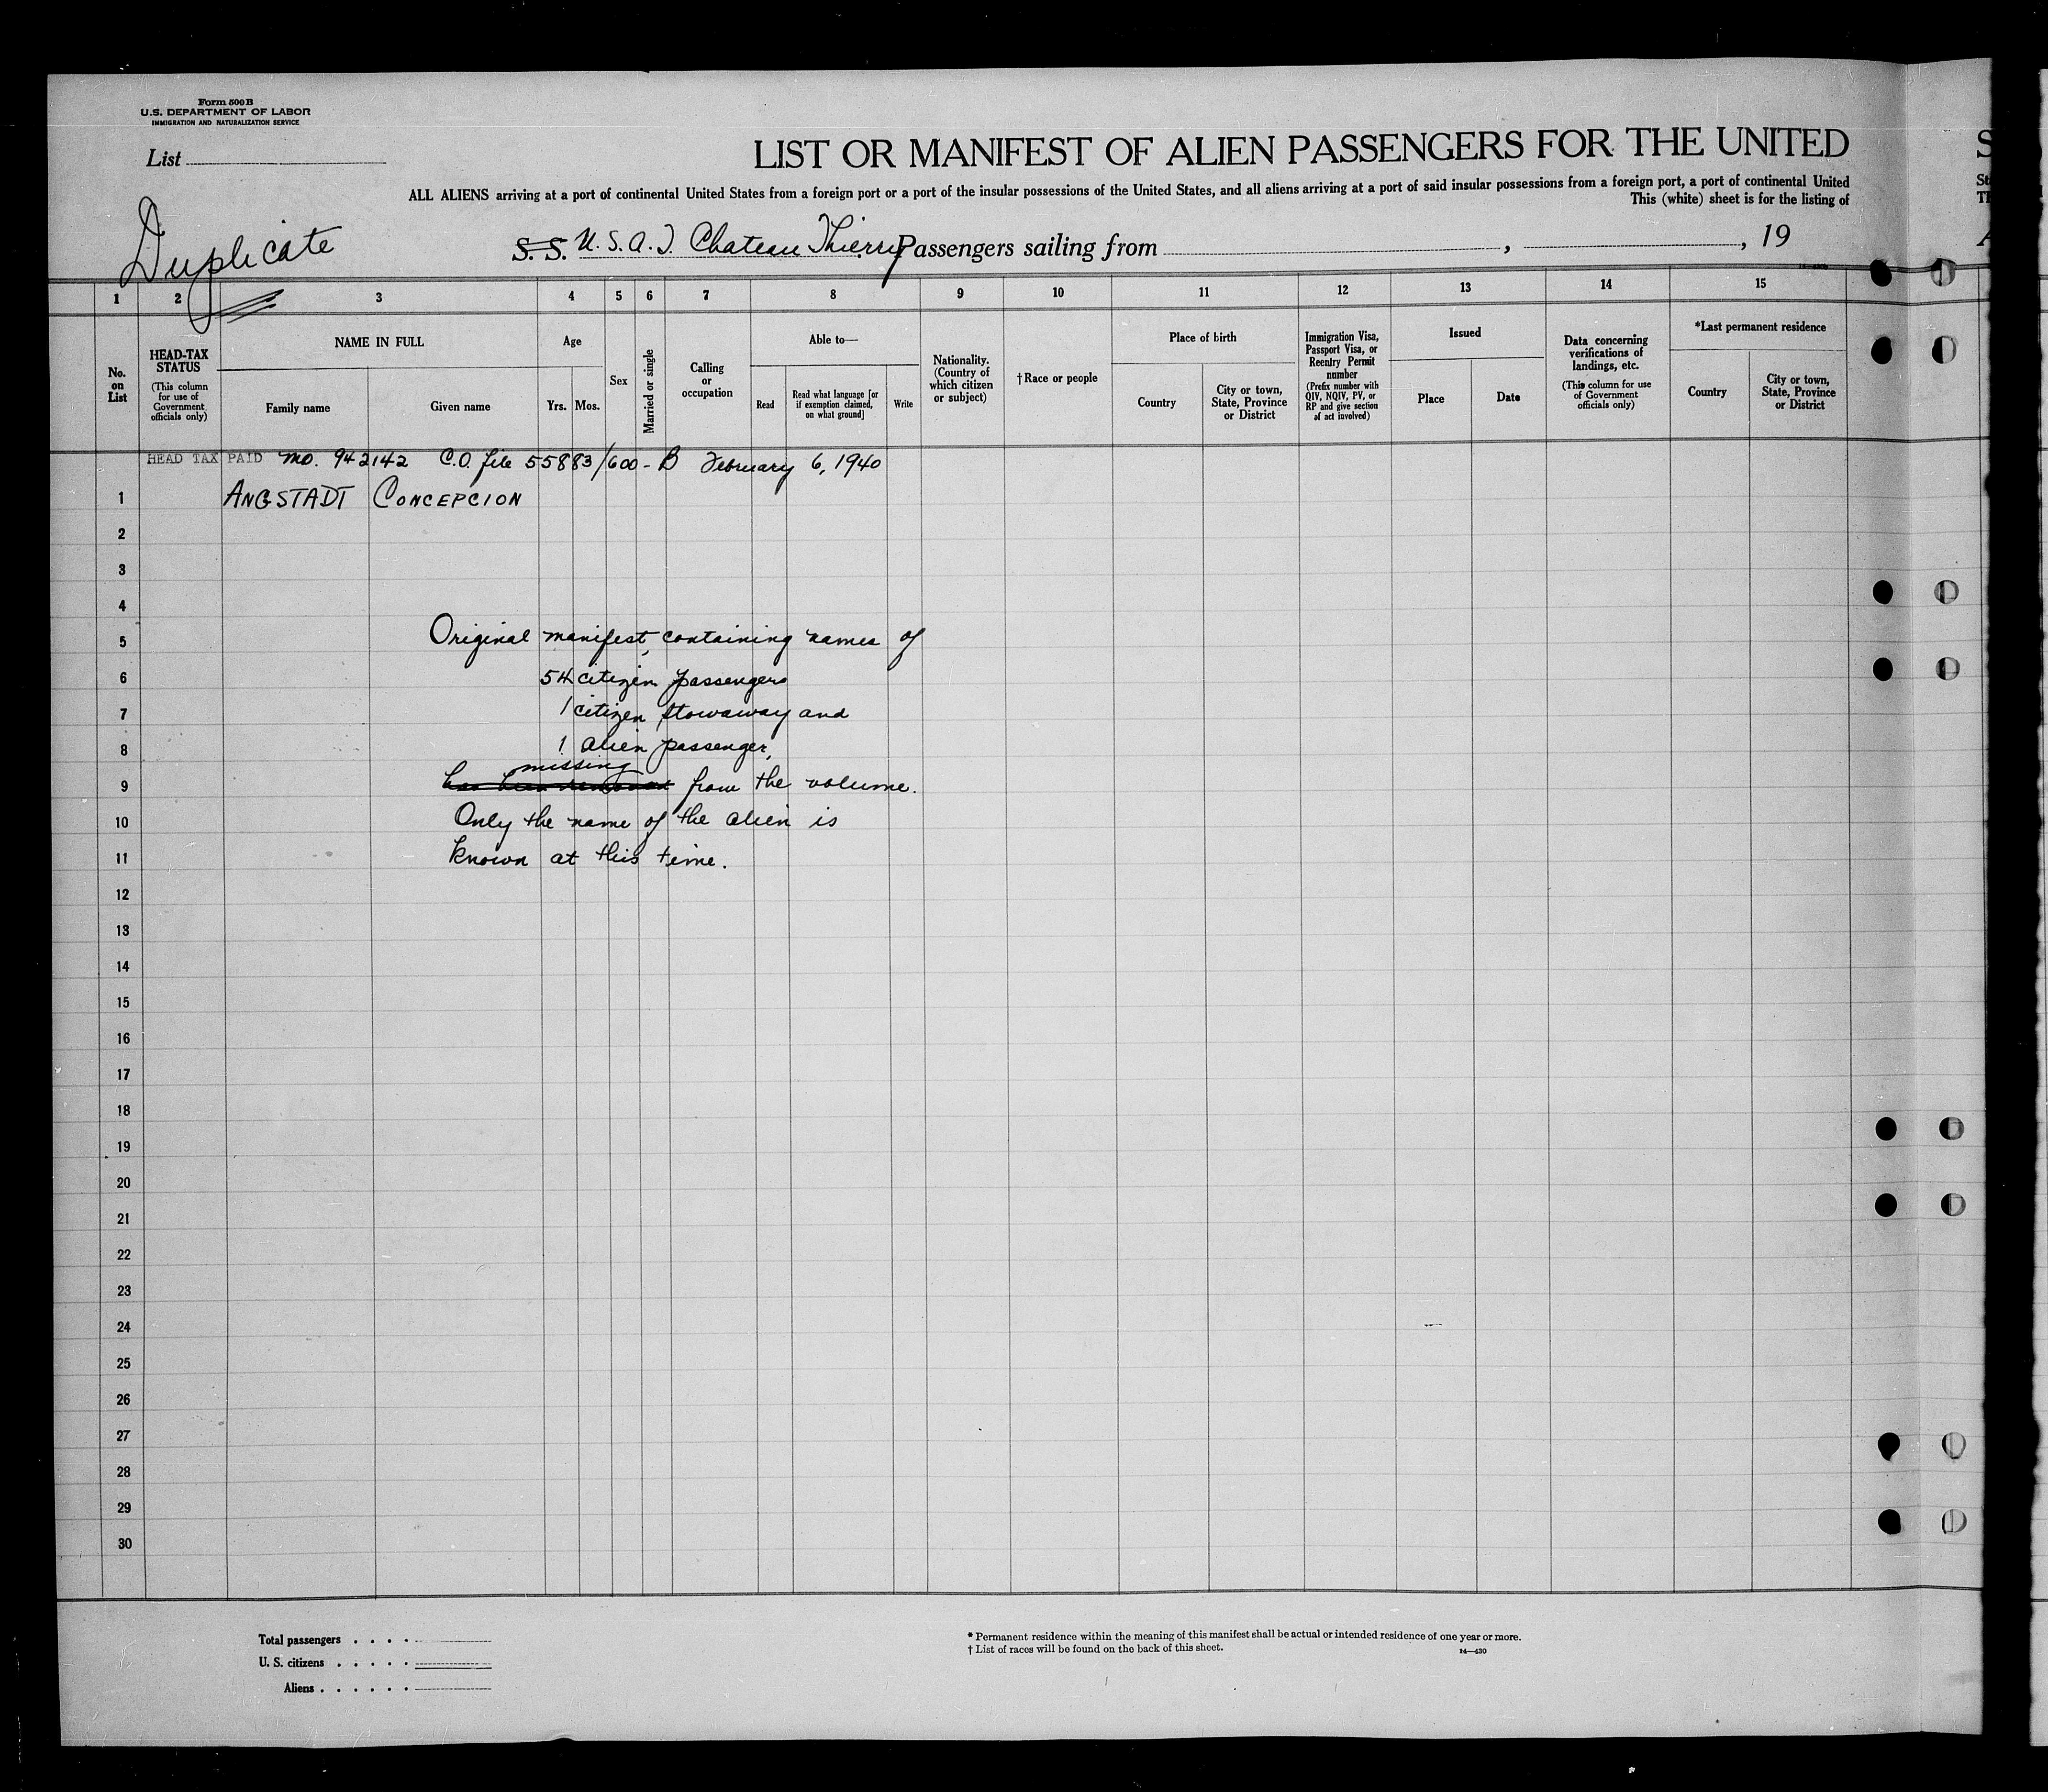 Form 500B
U.S. DEPARTMENT OF LABOR
IMMIGRATION AND NATURALIZATION SERVICE
List
LIST OR MANIFEST OF ALIEN PASSENGERS FOR THE UNITED
ALL ALIENS arriving at a port of continental United States from a foreign port or a port of the insular possessions of the United States, and all aliens arriving at a port of said insular possessions from a foreign port, a port of continental United
This (white) sheet is for the listing of
Duplicate
S. S. U.S.A.T. Chateau Thierry Passengers sailing from , , 19
1 2 3 4 5 6 7 8 9 10 11 12 13 14 15
No. on List
HEAD-TAX STATUS
(This column for use of Government officials only)
NAME IN FULL
Family name
Given name
Age
Yrs.
Mos.
Sex
Married or single
Calling or occupation
Able to—
Read
Read what language [or if exemption claimed, on what ground]
Write
Nationality. (Country of which citizen or subject)
†Race or people
Place of birth
Country
City or town, State, Province or District
Immigration Visa, Passport Visa, or Reentry Permit number
(Prefix number with QIV, NQIV, PV, or RP and give section of act involved)
Issued
Place
Date
Data concerning verifications of landings, etc.
(This column for use of Government officials only)
*Last permanent residence
Country
City or town, State, Province or District
HEAD TAX PAID MO. 942142 C.O. file 55883/600-B February 6, 1940
1 ANGSTADT CONCEPCION
2
3
4
5 Original manifest, containing names of
6 54 citizen passengers
7 1 citizen stowaway and
8 1 alien passenger,
missing
9 has been removed from the volume.
10 Only the name of the alien is
11 known at this time.
12
13
14
15
16
17
18
19
20
21
22
23
24
25
26
27
28
29
30
Total passengers . . . .
U. S. citizens . . . . .
Aliens . . . . . .
* Permanent residence within the meaning of this manifest shall be actual or intended residence of one year or more.
† List of races will be found on the back of this sheet.
14—430